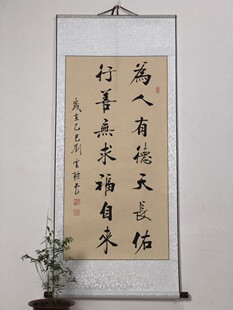 為人有德天長佑
行善無求福自來
歲在乙巳劉